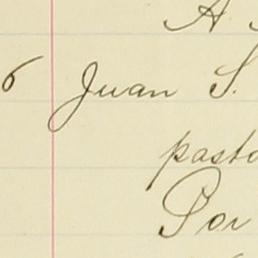 A
6 Juan S.
pasto
Por